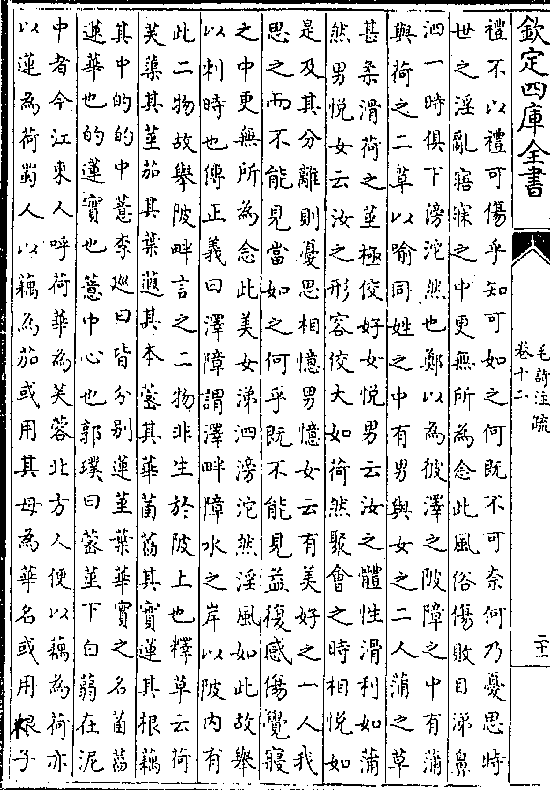 欽定四庫全書
毛詩注疏
卷十二
二十一
禮不以禮可傷乎知可如之何既不可奈何乃憂思時
世之淫亂寤寐之中更無所為念此風俗傷敗目涕鼻
泗一時俱下滂沱然也鄭以為彼澤之陂障之中有蒲
與荷之二草以喻同姓之中有男與女之二人蒲之草
甚柔滑荷之莖極佼好女悦男云汝之體性滑利如蒲
然男悦女云汝之形容佼大如荷然聚會之時相悦如
是及其分離則憂思相憶男憶女云有美好之一人我
思之而不能見當如之何乎既不能見益復感傷覺寢
之中更無所為念此美女涕泗滂沱然淫風如此故舉
以刺時也傳正義曰澤障謂澤畔障水之岸以陂内有
此二物故舉陂畔言之二物非生於陂上也釋草云荷
芙蕖其莖茄其葉蕸其本蔤其華菡萏其實蓮其根藕
其中的的中薏李巡曰皆分别蓮莖葉華實之名菡萏
蓮華也的蓮實也薏中心也郭璞曰蔤莖下白蒻在泥
中者今江東人呼荷華為芙蓉北方人便以藕為荷亦
以蓮為荷蜀人以藕為茄或用其母為華名或用根子